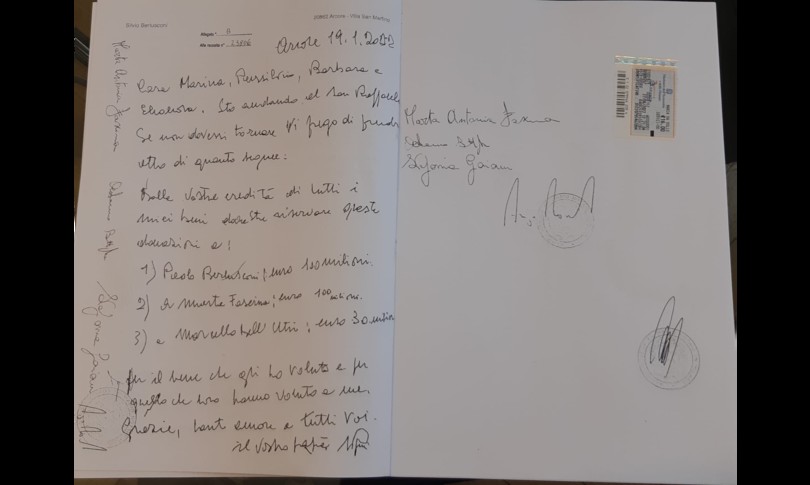 Silvio Berlusconi
20862 Arcore - Villa San Martino
Allegato " A
Alla raccolta n°
Arcore 19.1.2022
Cara Marina, Piersilvio, Barbara e
Eleonora, Sto andando al San Raffaele
Se non dovessi tornare Vi prego di prendere
atto di quanto segue:
Dalle vostre eredità di tutti i
miei beni dovreste riservare queste
donazioni a:
1) Paolo Berlusconi; euro 100 milioni.
2) a Marta Fascina; euro 100 milioni.
3) a Marcello Dell'Utri; euro 30 milioni
per il bene che gli ho voluto e per
quello che loro hanno voluto a me.
Grazie, tanto amore a tutti Voi.
il Vostro papà
Marta Antonia Fascina
Marta Antonia Fascina
Stefania
Stefania